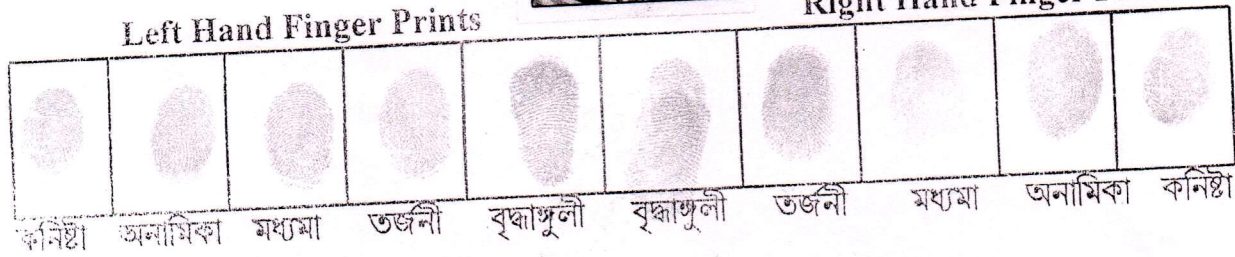 Left Hand Finger Prints
Right Hand Finger
কনিষ্টা অনামিকা মধ্যমা তর্জনী বৃদ্ধাঙ্গুলী বৃদ্ধাঙ্গুলী তর্জনী মধ্যমা অনামিকা কনিষ্টা